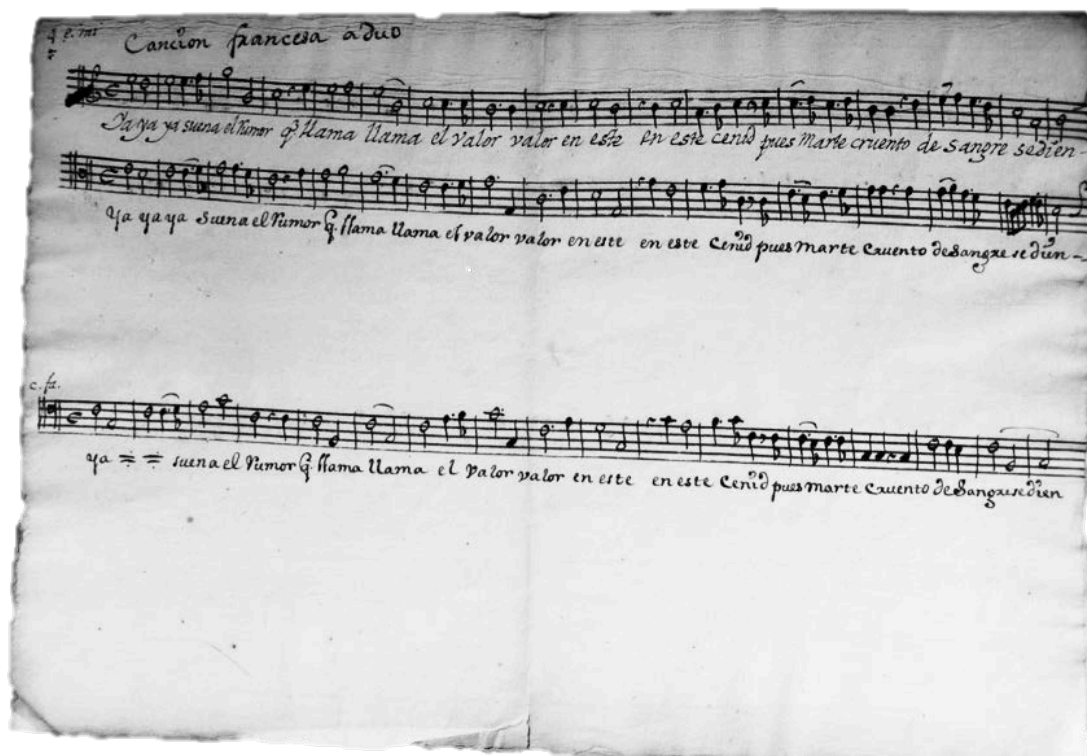 4 e. mi
Cancion francesa aduo
Ya ya ya suena el Rumor q̃. llama llama el valor valor en este en este cenid pues marte cruento de sangre sedien-
Ya ya ya suena el Rumor q̃. llama llama el valor valor en este en este Cenid pues marte Cruento de sangre se dien-
c. fa.
ya suena el Rumor q̃ llama llama el valor valor en este en este Cenid pues marte Cruento de sangre sedien